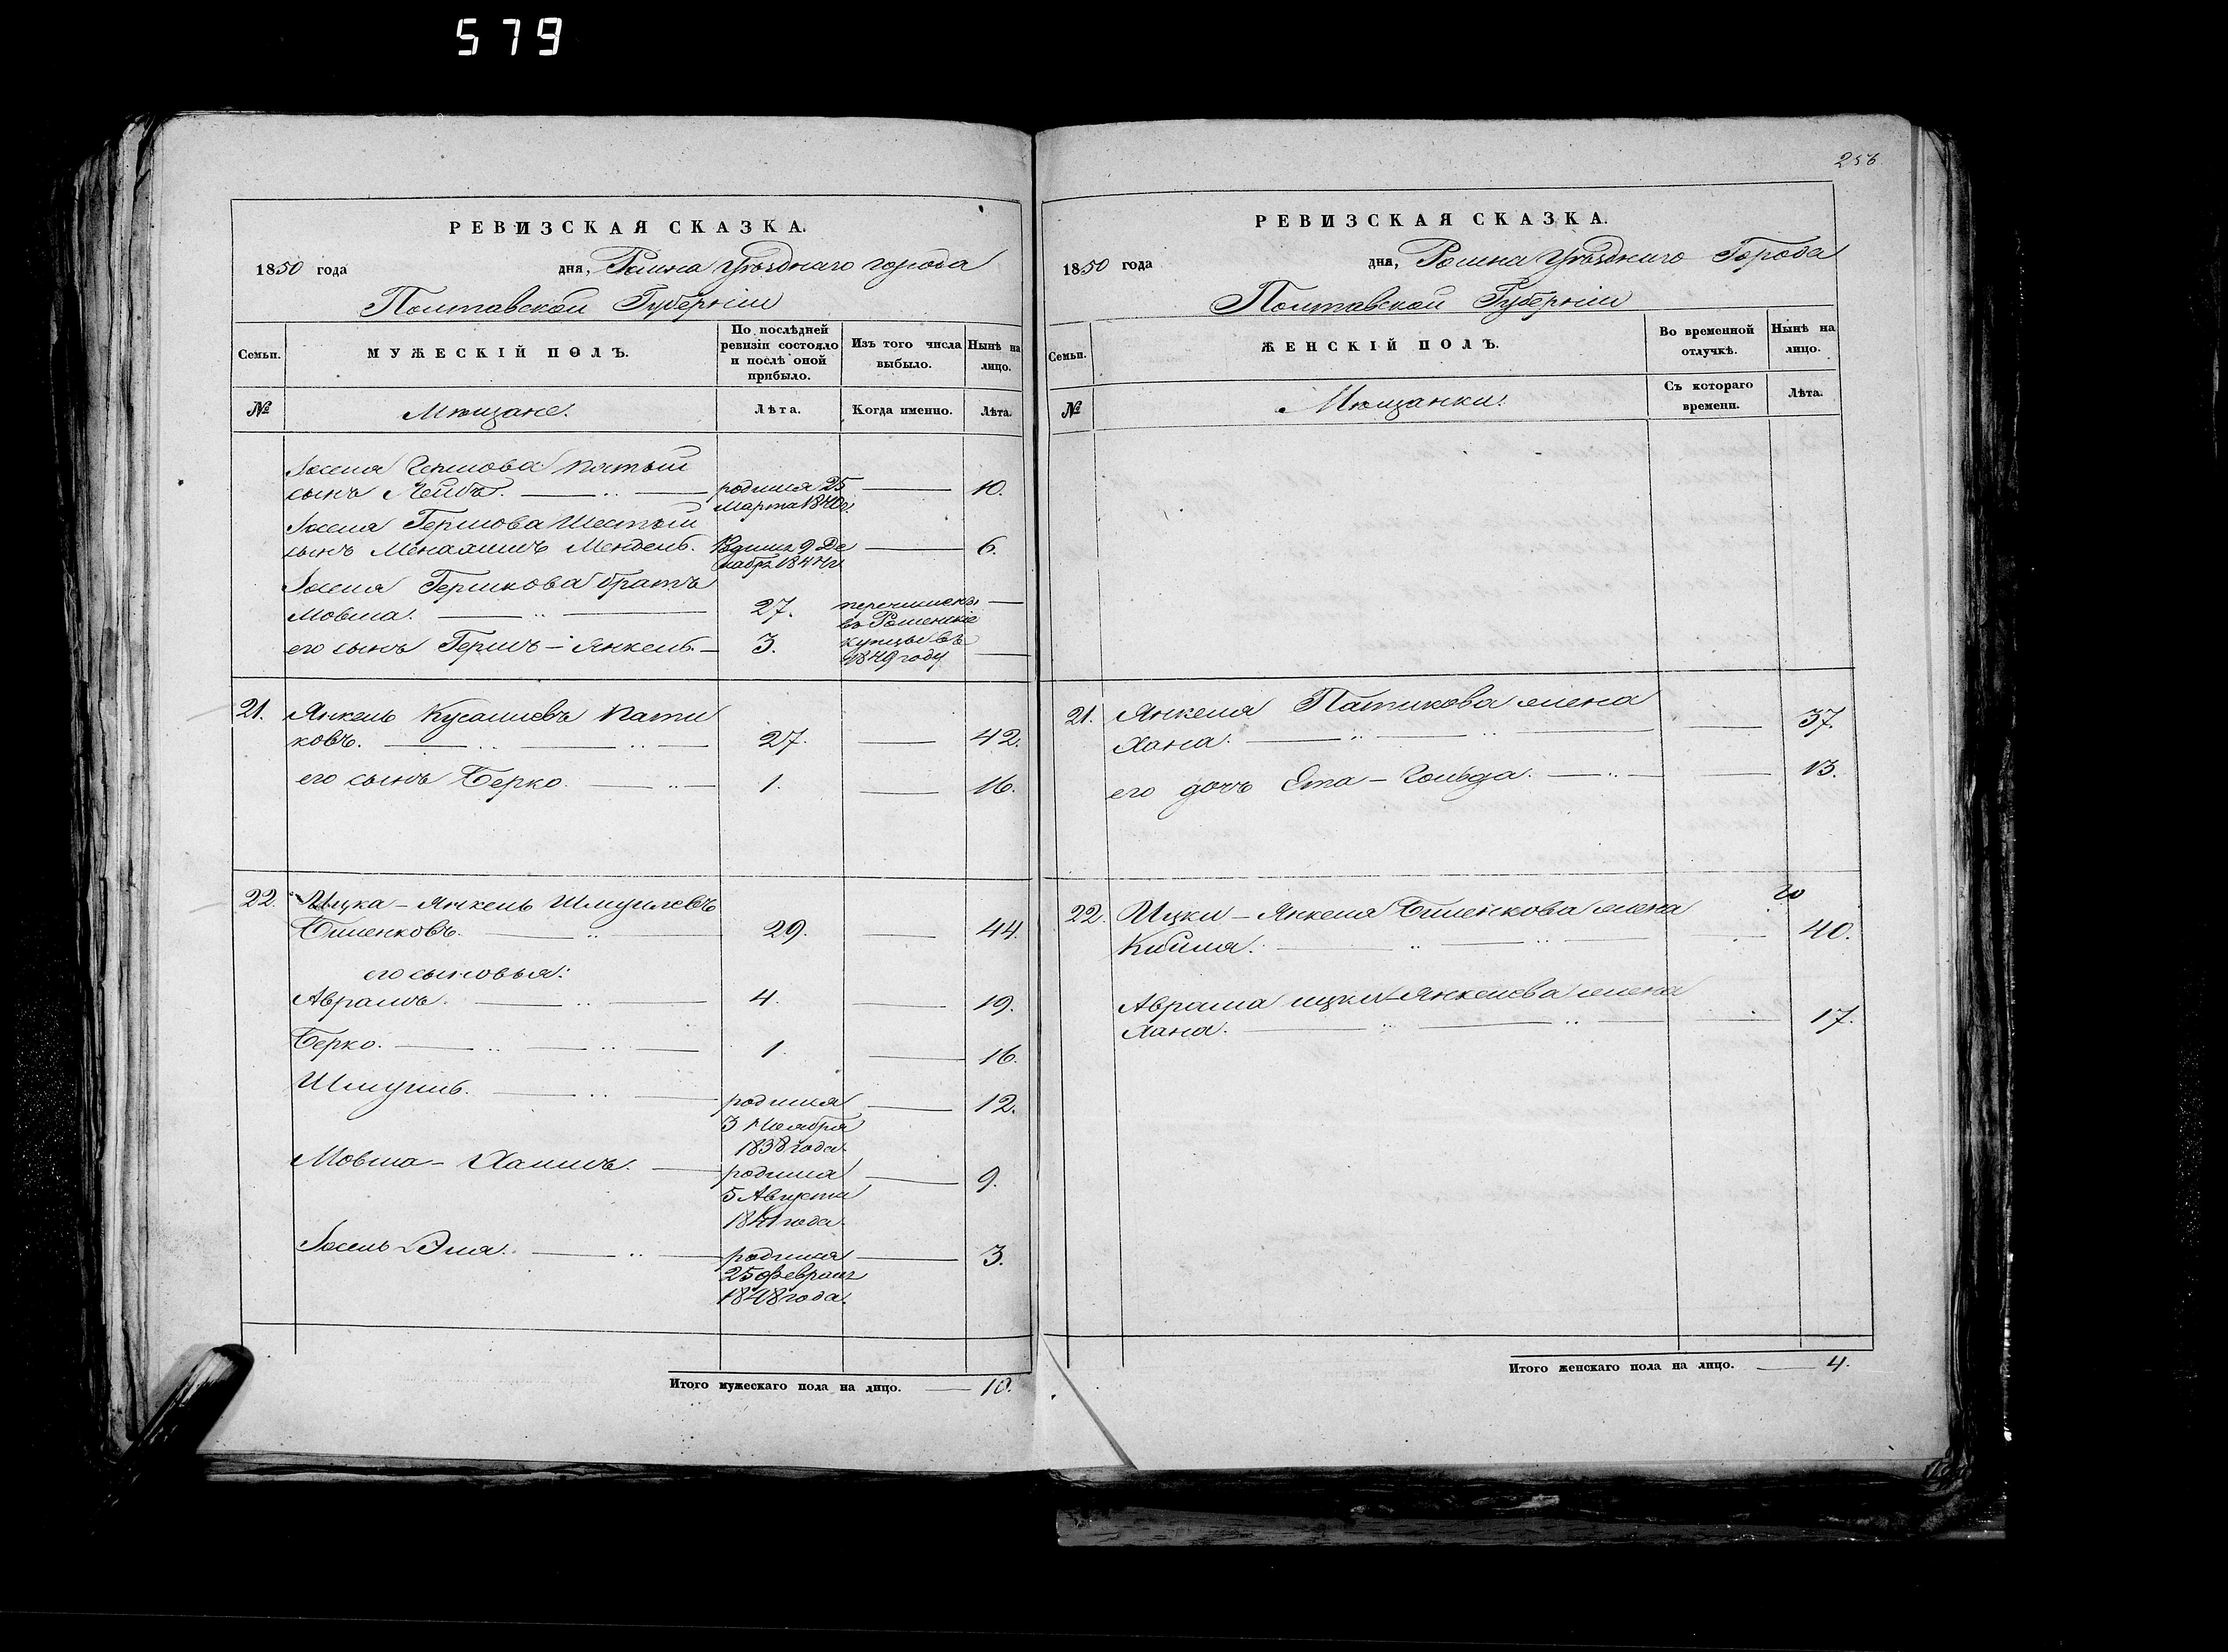 579
256
РЕВИЗСКАЯ СКАЗКА.
1850 года дня, Ромна Уѣзднаго города
Полтавской Губерніи
Семьи.
МУЖЕСКІЙ ПОЛЪ.
По послѣдней ревизіи состояло и послѣ оной прибыло.
Изъ того числа выбыло.
Нынѣ на лицо.
№
Мѣщане.
Лѣта.
Когда именно.
Лѣта.
пятый
сынъ Лейба. родился 25 10.
Марта 1840г.
Гершова шестый
сынъ Менахимъ Мендель. Родился 9 Де 6.
кабря 1844г
Гершкова братъ
Мовша. 27. перечислены
въ Роменскіе
его сынъ Гершъ-Янкель. 3. купцы въ
1849 году
21. Янкель Кусаліевъ Пати
ковъ. 27. 42.
его сынъ Берко. 1. 16.
22. Ицка-Янкель Шмуилевъ
Биленковъ. 29. 44.
его сыновья:
Абрамъ. 4. 19.
Берко. 1. 16.
Шмуиль. родился 12.
3 Ноября
1838 года.
Мовша-Хаимъ. родился 9.
5 Августа
1841 года.
родился 3.
25 февраля
1848 года.
Итого мужескаго пола на лицо. 10.
РЕВИЗСКАЯ СКАЗКА.
1850 года дня, Ромна Уѣзднаго Города
Полтавской Губерніи
Семьи.
ЖЕНСКІЙ ПОЛЪ.
Во временной отлучкѣ.
Нынѣ на лицо.
№
Мѣщанки.
Съ котораго времени.
Лѣта.
21. Янкеля Патикова жена
Хана. 37.
его дочь Ета-Гольда. 13.
22. Ицки-Янкеля Биленкова жена
40.
Абрама Ицки-Янкелева жена
Хана. 17.
Итого женскаго пола на лицо. 4.